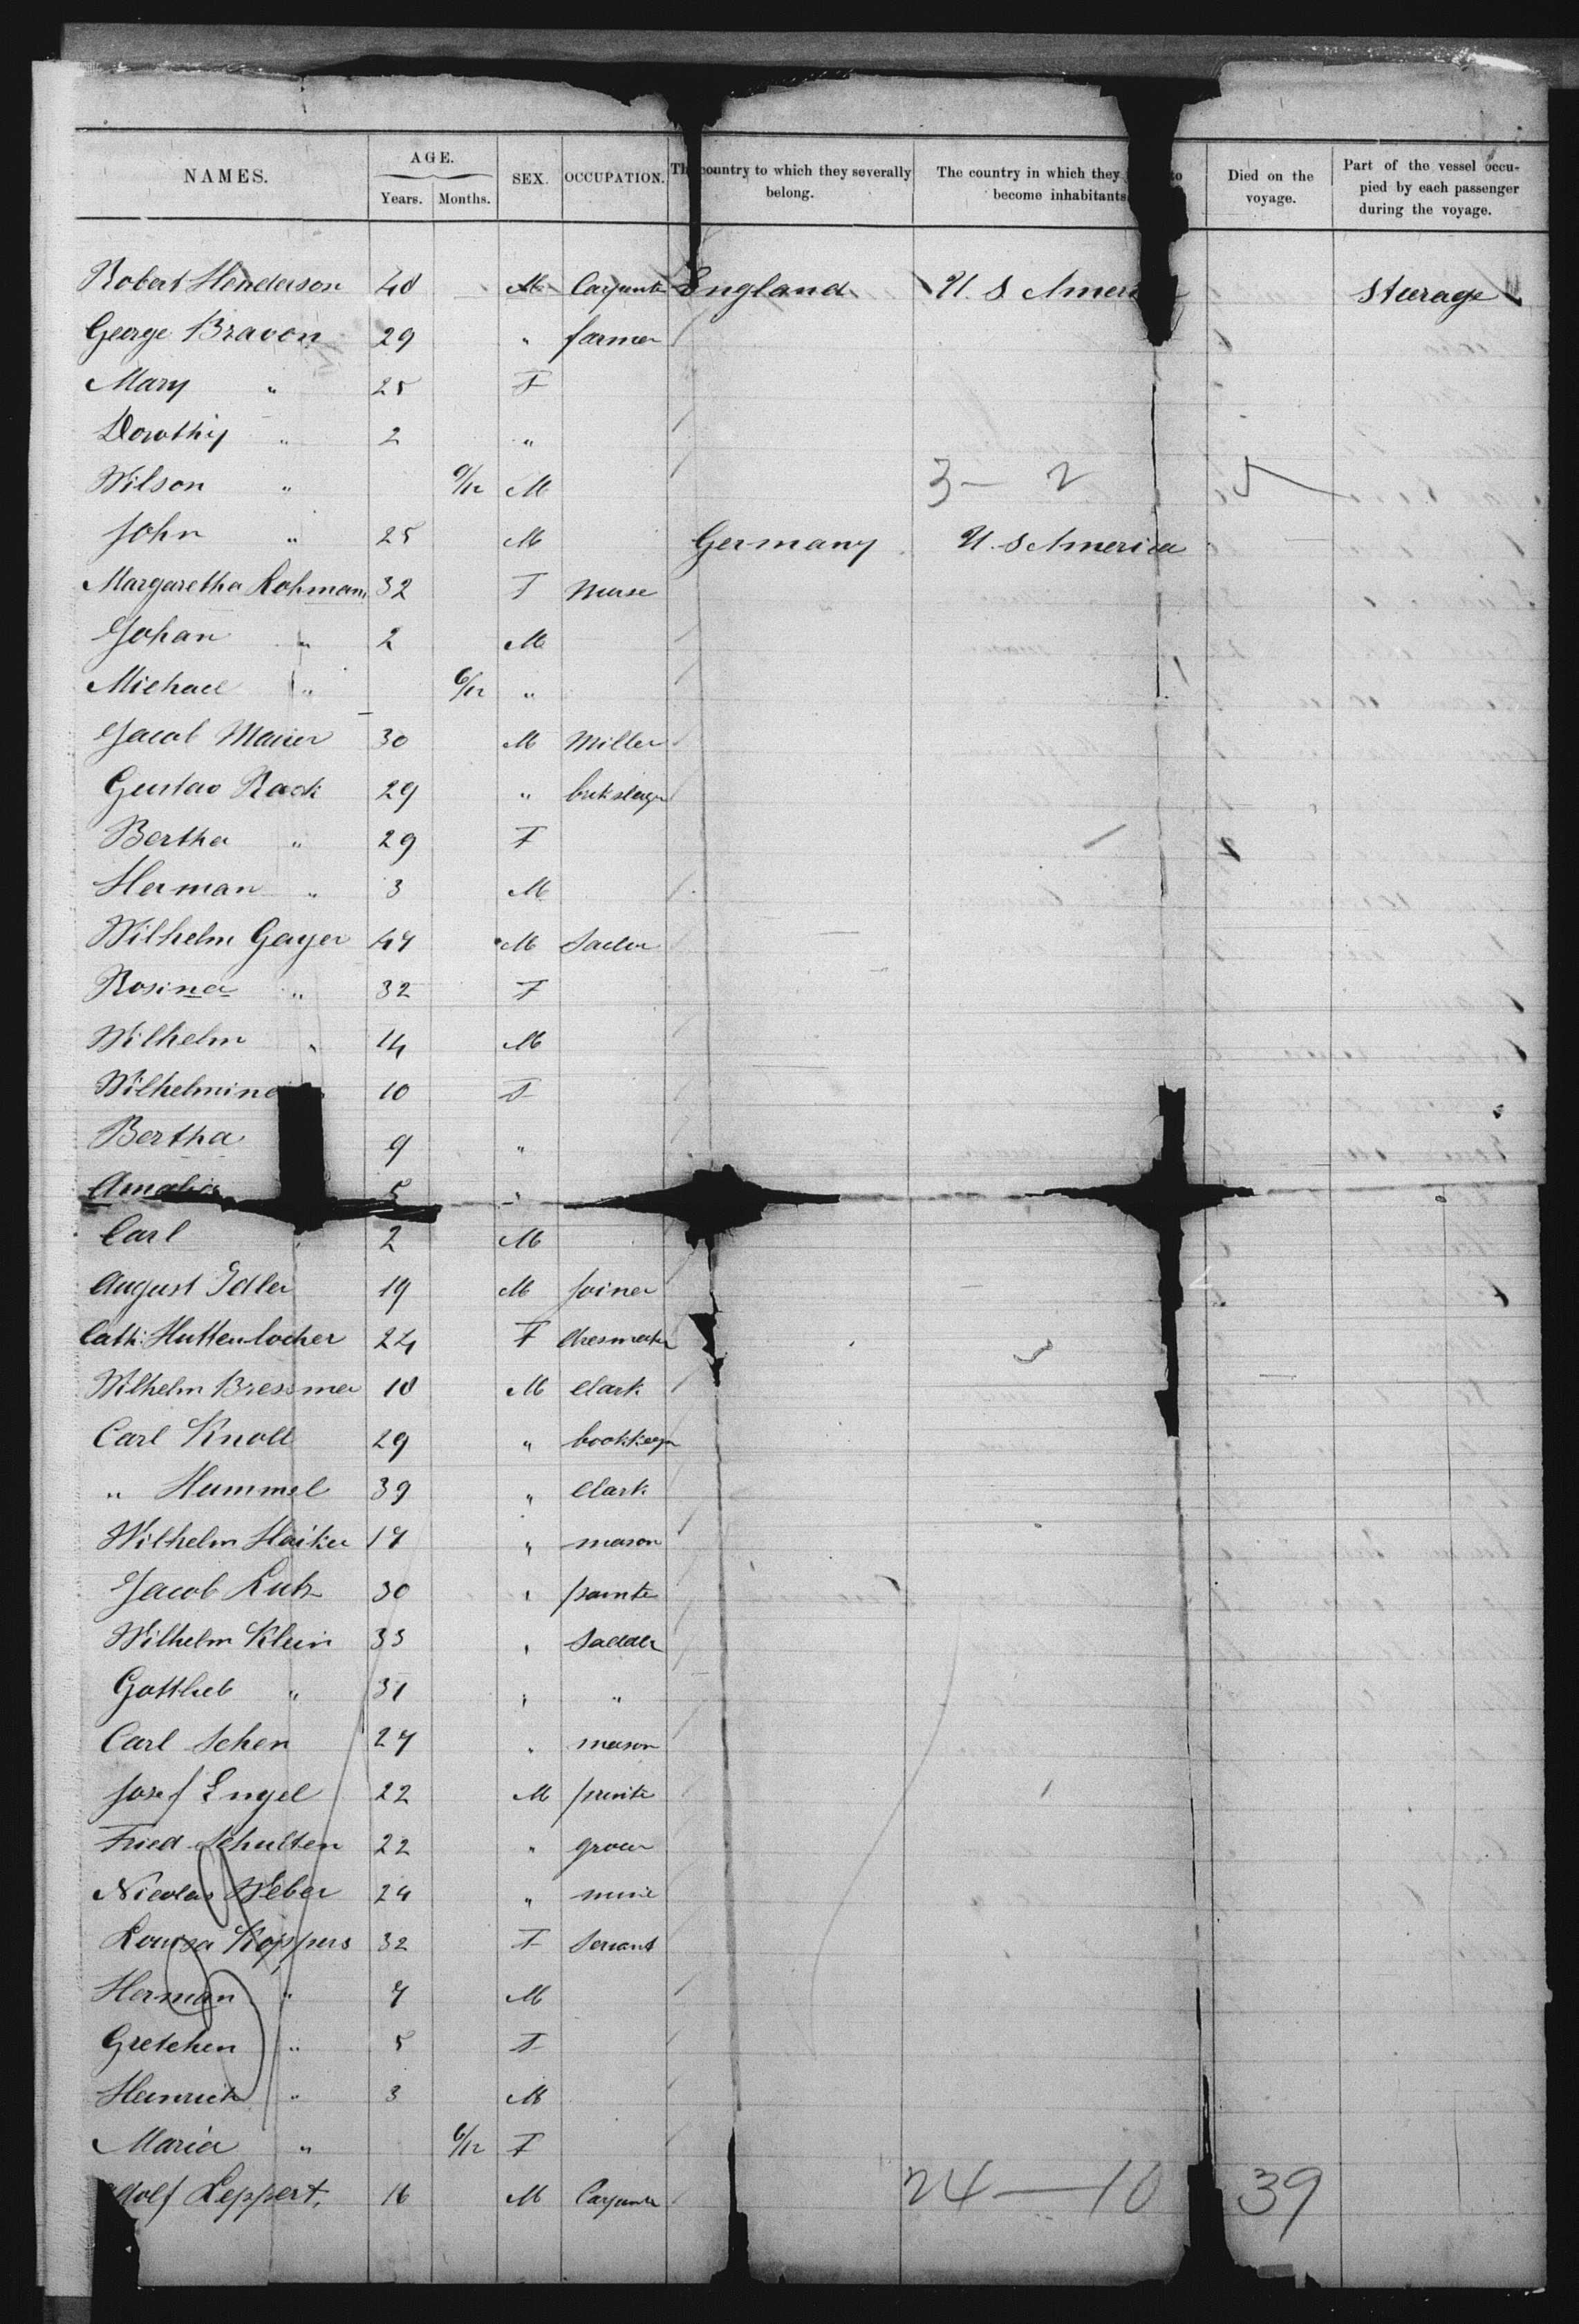 NAMES. AGE. SEX. OCCUPATION. The country to which they severally belong. The country in which they to become inhabitants Died on the voyage. Part of the vessel occupied by each passenger during the voyage.
Years. Months.
Robert Henderson 40 M Carpenter England U. S. America Steerage
George Bravon 29 " farmer
Mary " 25 F
Dorothy " 2 "
Wilson " 9/12 M 3 — 2 5
John " 25 M Germany U. S America
Margaretha Lohmann 32 F Nurse
Johan " 2 M
Michael " 6/12 "
Jacob Maier 30 M Miller
Gustav Rack 29 "
Bertha " 29 F
Herman " 3 M
Wilhelm Geyer 47 M
Rosina " 32 F
Wilhelm " 14 M
Wilhelmina 10 F
Bertha 9 "
Amalia 5 "
Carl 2 M
August Idler 19 M Joiner
Cath: Huttenlocher 24 F dresmaker
Wilhelm Bressmer 18 M clark
Carl Knoll 29 " bookkeeper
" Hummel 39 " clark
Wilhelm Haiker 17 " mason
Jacob Lutz 30 " painter
Wilhelm Klein 33 " Saddler
Gottlieb " 31 " "
Carl Schen 27 " mason
Josef Engel 22 M printer
Fried Schulten 22 " grocer
Nicolas Weber 24 "
Louisa Koppers 32 F Servant
Herman " 7 M
Gretchen " 5 F
Heinrich " 3 M
Maria " 6/12 F
dolf Leppert, 16 M Carpenter 24 — 10 39